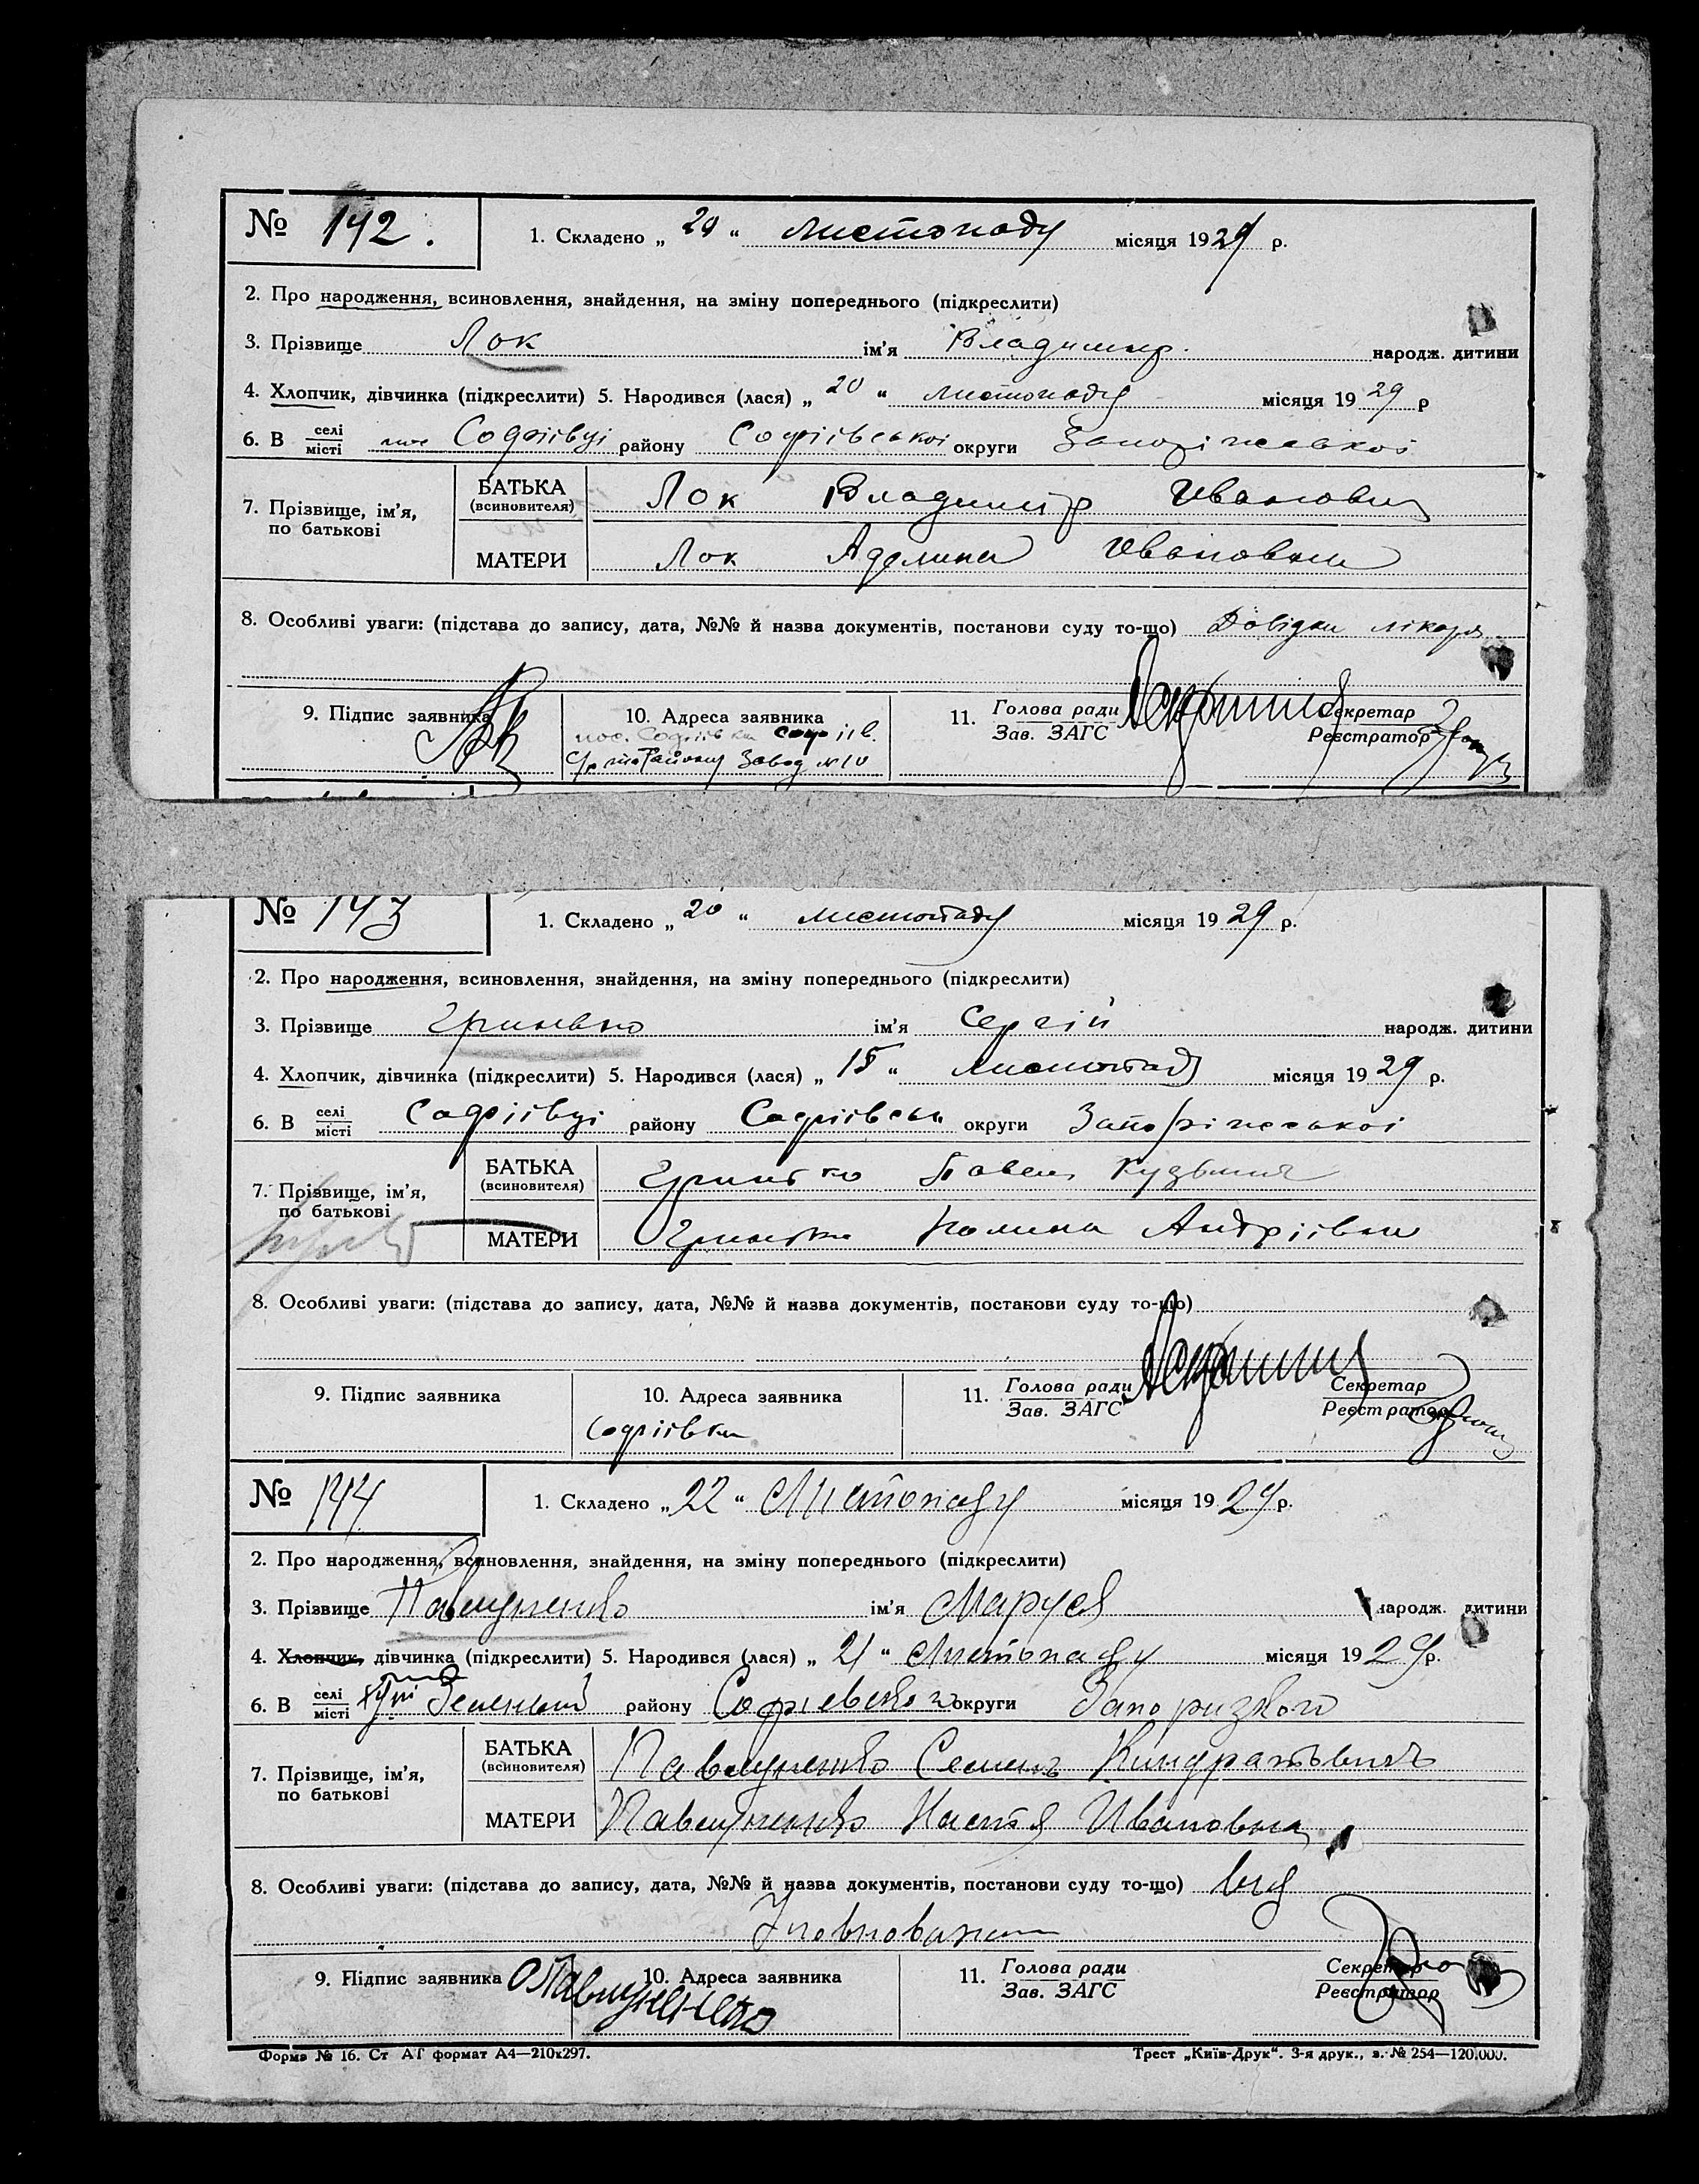 № 142.
1. Складено „ 20 “ листопаду місяця 1929 р.
2. Про народження, всиновлення, знайдення, на зміну попереднього (підкреслити)
3. Прізвище Лок ім'я Владимир. народж. дитини
4. Хлопчик, дівчинка (підкреслити) 5. Народився (лася) „ 20 “ листопаду місяця 1929 р
6. В селі місті пос Софіївці району Софіївської округи Запоріжської
7. Прізвище, ім'я, по батькові
БАТЬКА (всиновителя) Лок Владимір Иванович
МАТЕРИ Лок Аделина Ивановна
8. Особливі уваги: (підстава до запису, дата, №№ й назва документів, постанови суду то-що) Довідка лікаря
9. Підпис заявника 10. Адреса заявника 11. Голова ради Зав. ЗАГС Секретар Реєстратор
пос. Софіївка Софіїв.
району Завод №10
№ 143
1. Складено „ 20 “ листопаду місяця 1929 р.
2. Про народження, всиновлення, знайдення, на зміну попереднього (підкреслити)
3. Прізвище Гринько ім'я Сергій народж. дитини
4. Хлопчик, дівчинка (підкреслити) 5. Народився (лася) „ 15 “ листопад місяця 1929 р.
6. В селі місті Софіівці району Софіівськ округи Запоріжської
7. Прізвище, ім'я, по батькові
БАТЬКА (всиновителя) Павел Кузьмич
МАТЕРИ Полина Андріівна
8. Особливі уваги: (підстава до запису, дата, №№ й назва документів, постанови суду то-що)
9. Підпис заявника 10. Адреса заявника 11. Голова ради Зав. ЗАГС Секретар Реєстратор
Софіівка
№ 144
1. Складено „ 22 “ Листопаду місяця 1929 р.
2. Про народження, всиновлення, знайдення, на зміну попереднього (підкреслити)
3. Прізвище Павлуненко ім'я Маруся народж. дитини
4. Хлопчик, дівчинка (підкреслити) 5. Народився (лася) „ 21 “ Листопаду місяця 1929 р.
6. В селі місті Зеленый району Софіевского округи Запоризкого
7. Прізвище, ім'я, по батькові
БАТЬКА (всиновителя) Павлуненко Семень Киндратьвичь
МАТЕРИ Павлуненко Настя Ивановна
8. Особливі уваги: (підстава до запису, дата, №№ й назва документів, постанови суду то-що) від
9. Підпис заявника Павлуненко 10. Адреса заявника 11. Голова ради Зав. ЗАГС Секретар Реєстратор
Форма № 16. Ст АГ формат А4—210х297.
Трест „Київ-Друк“. 3-я друк., з. № 254—120.000.